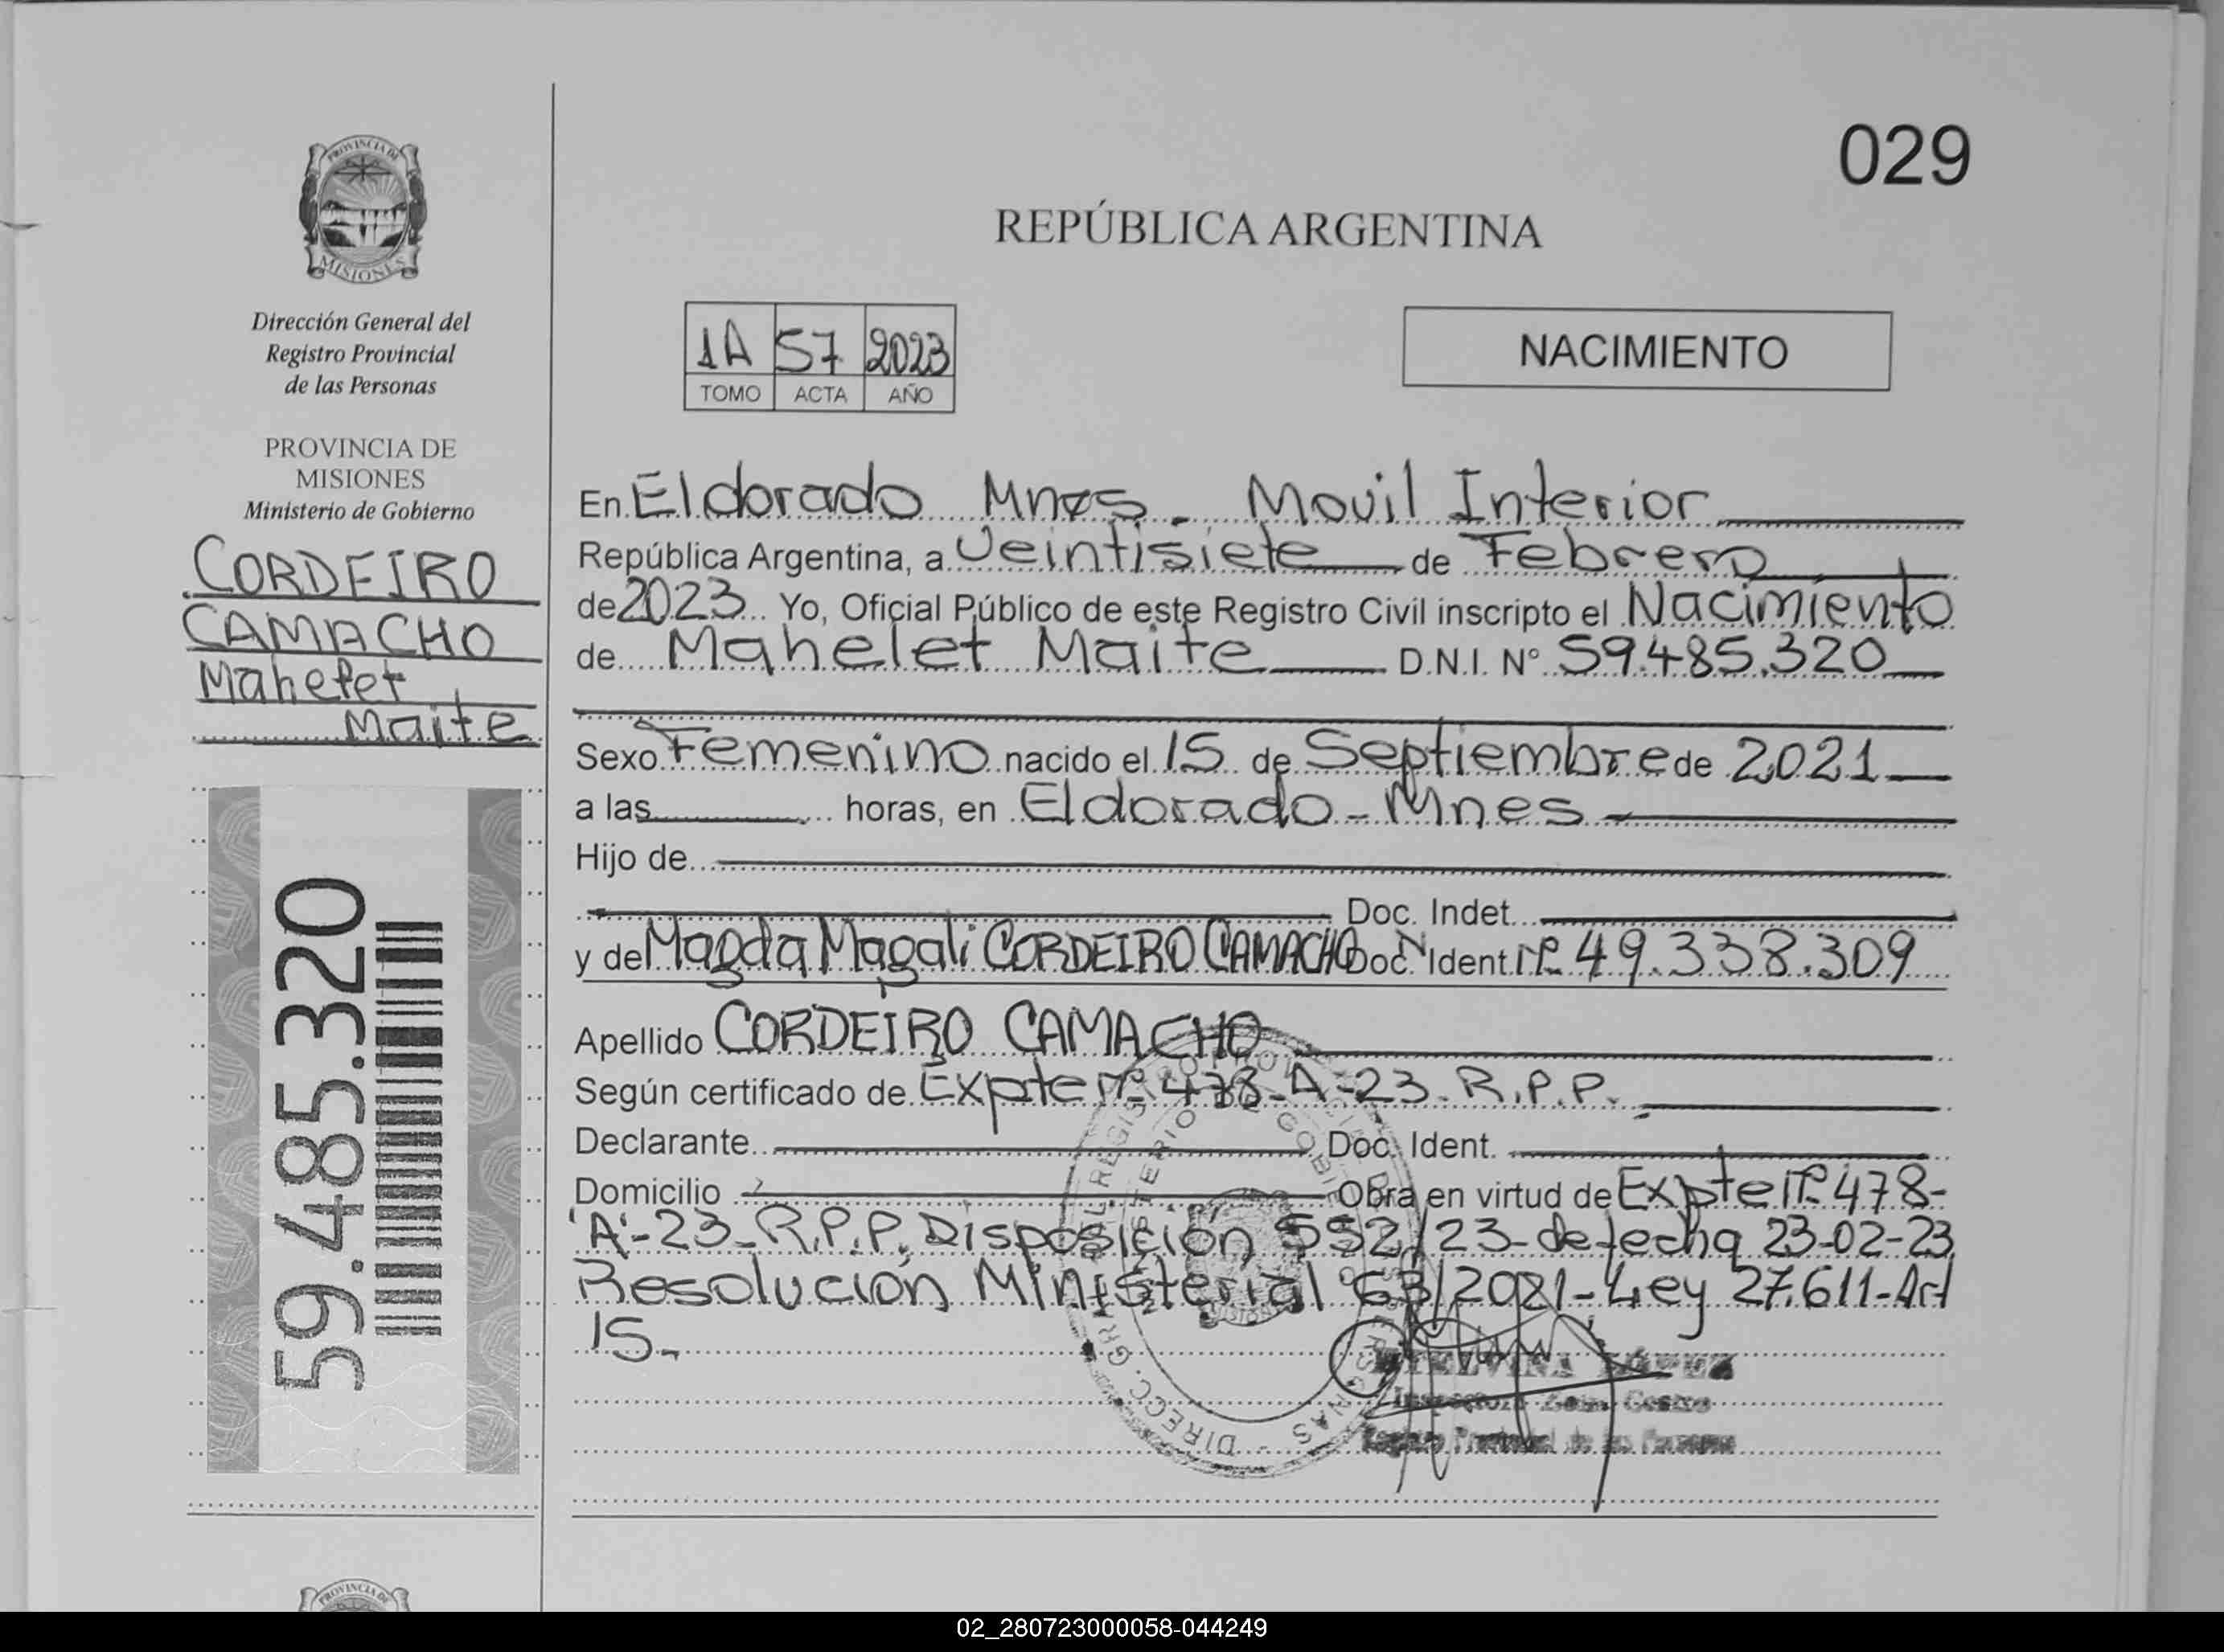 029
REPÚBLICA ARGENTINA
PROVINCIA DE
MISIONES
Dirección General del
Registro Provincial
de las Personas
PROVINCIA DE
MISIONES
Ministerio de Gobierno
CORDEIRO
CAMACHO
Mahelet
Maite
59.485.320
1A 57 2023
TOMO ACTA AÑO
NACIMIENTO
En Eldorado Mnes - Movil Interior
República Argentina, a Veintisiete de Febrero
de 2023 Yo, Oficial Público de este Registro Civil inscripto el Nacimiento
de Mahelet Maite D.N.I. N° 59.485.320
Sexo Femenino nacido el 15 de Septiembre de 2021
a las horas, en Eldorado - Mnes
Hijo de
Doc. Indet.
y de Magda Magali CORDEIRO CAMACHO Doc. Ident Nº 49.338.309
Apellido CORDEIRO CAMACHO
Según certificado de Expte nº 478-A-23-R.P.P.
Declarante Doc. Ident.
Domicilio Obra en virtud de Expte Nº 478-
"A"-23-R.P.P. Disposición 552/23-de fecha 23-02-23
Resolución Ministerial 63/2021-Ley 27.611-Art
15-
LÓPEZ
Inspectora Zona Centro
Registro Provincial de las Personas
PROVINCIA DE
02_280723000058-044249